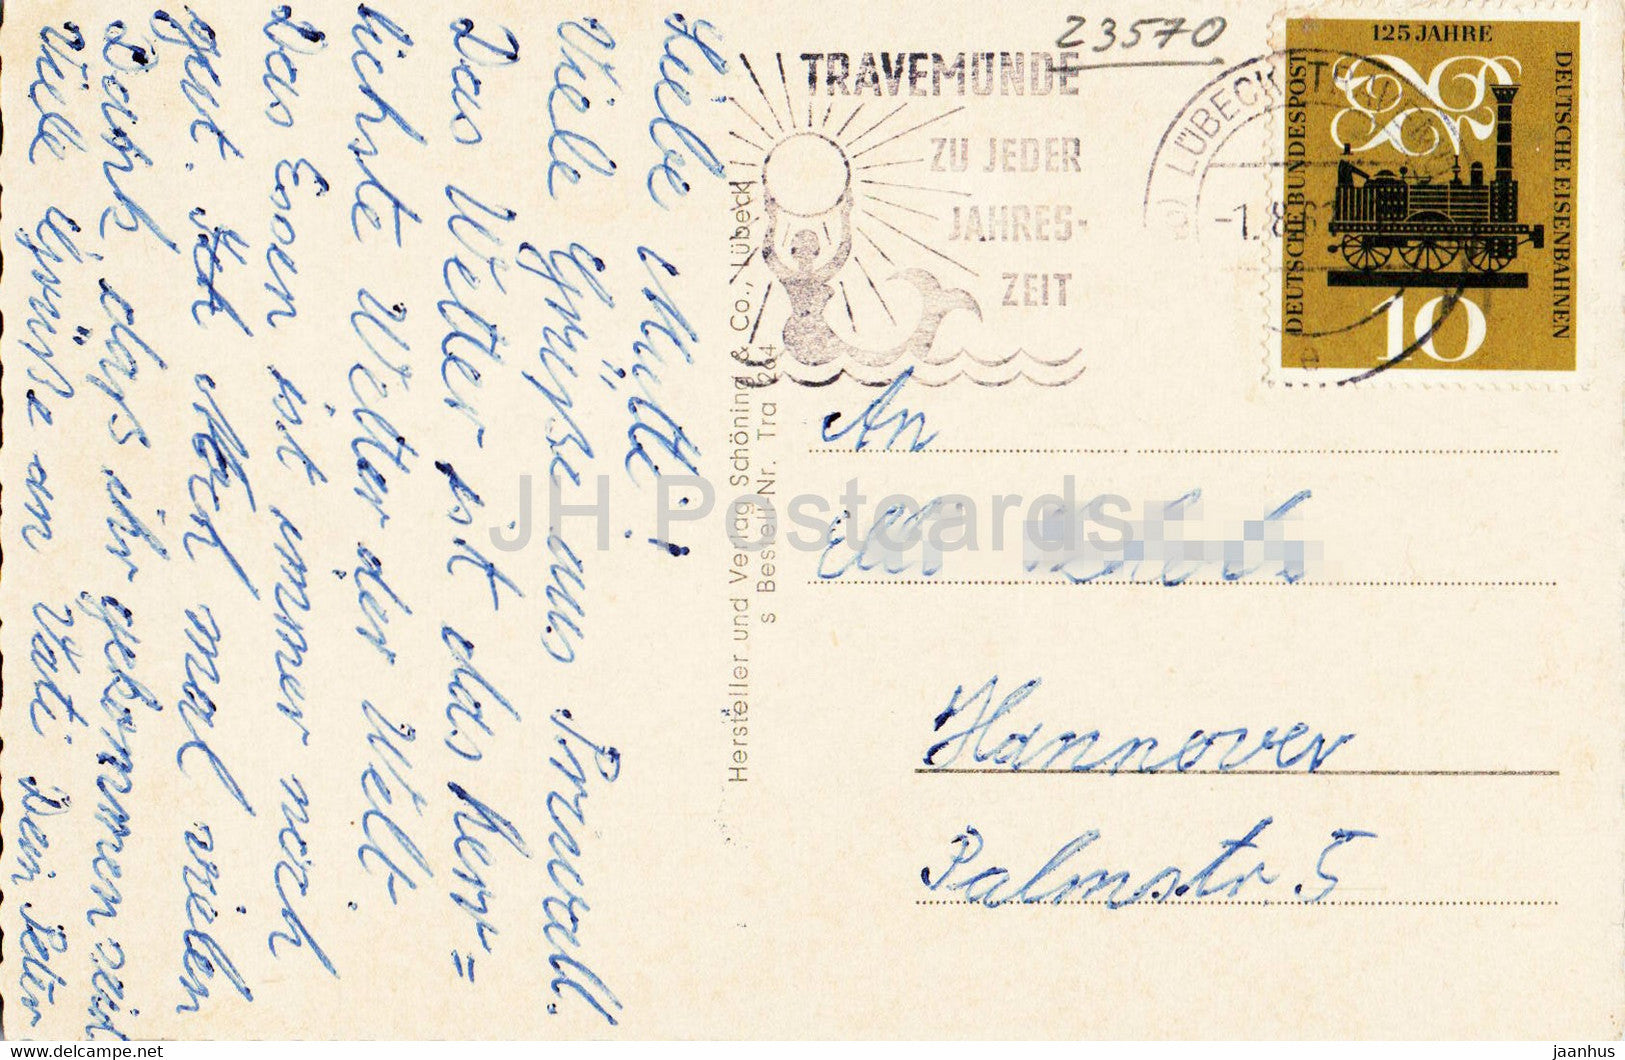 Liebe Mutti!
Viele Grüße aus Priwall.
Das Wetter ist das herr=
lichste Wetter der Welt.
Das Essen ist immer noch
gut. Ich möch mal vielen
Dank, daß ihr gekommen seid
Viele Grüße an Vati Dein Peter
Hersteller und Verlag Schöning & Co., Lübeck
s Bestell-Nr. Tra 264
23570
TRAVEMÜNDE
ZU JEDER
JAHRES-
ZEIT
LÜBECK-
-1.8.6
125 JAHRE
DEUTSCHE BUNDESPOST
DEUTSCHE EISENBAHNEN
10
An
Hannover
Palmstr. 5
JH Postcards
delcampe.net
jaanhus